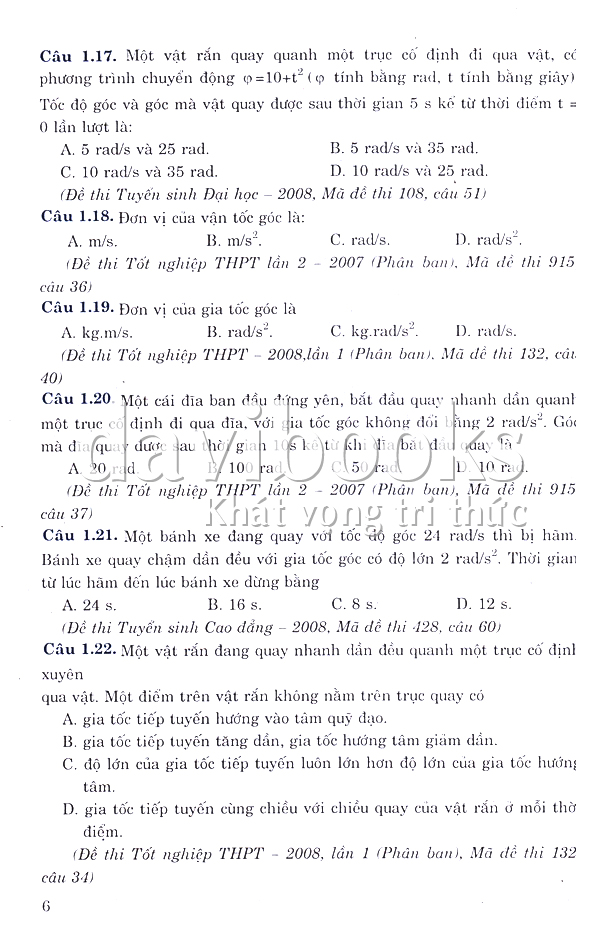 Câu 1.17. Một vật rắn quay quanh một trục cố định đi qua vật, có
phương trình chuyển động φ=10+t² (φ tính bằng rad, t tính bằng giây)
Tốc độ góc và góc mà vật quay được sau thời gian 5 s kể từ thời điểm t =
0 lần lượt là:
A. 5 rad/s và 25 rad. B. 5 rad/s và 35 rad.
C. 10 rad/s và 35 rad. D. 10 rad/s và 25 rad.
(Đề thi Tuyển sinh Đại học – 2008, Mã đề thi 108, câu 51)
Câu 1.18. Đơn vị của vận tốc góc là:
A. m/s. B. m/s². C. rad/s. D. rad/s².
(Đề thi Tốt nghiệp THPT lần 2 – 2007 (Phân ban), Mã đề thi 915
câu 36)
Câu 1.19. Đơn vị của gia tốc góc là
A. kg.m/s. B. rad/s². C. kg.rad/s². D. rad/s.
(Đề thi Tốt nghiệp THPT – 2008,lần 1 (Phân ban), Mã đề thi 132, câu
40)
Câu 1.20. Một cái đĩa ban đầu đứng yên, bắt đầu quay nhanh dần quanh
một trục cố định đi qua đĩa, với gia tốc góc không đổi bằng 2 rad/s². Góc
mà đĩa quay được sau thời gian 10s kể từ khi đĩa bắt đầu quay là
A. 20 rad. B. 100 rad. C. 50 rad. D. 10 rad.
davibooks
(Đề thi Tốt nghiệp THPT lần 2 – 2007 (Phân ban), Mã đề thi 915
câu 37)
Khát vọng tri thức
Câu 1.21. Một bánh xe đang quay với tốc độ góc 24 rad/s thì bị hãm.
Bánh xe quay chậm dần đều với gia tốc góc có độ lớn 2 rad/s². Thời gian
từ lúc hãm đến lúc bánh xe dừng bằng
A. 24 s. B. 16 s. C. 8 s. D. 12 s.
(Đề thi Tuyển sinh Cao đẳng – 2008, Mã đề thi 428, câu 60)
Câu 1.22. Một vật rắn đang quay nhanh dần đều quanh một trục cố định
xuyên
qua vật. Một điểm trên vật rắn không nằm trên trục quay có
A. gia tốc tiếp tuyến hướng vào tâm quỹ đạo.
B. gia tốc tiếp tuyến tăng dần, gia tốc hướng tâm giảm dần.
C. độ lớn của gia tốc tiếp tuyến luôn lớn hơn độ lớn của gia tốc hướng
tâm.
D. gia tốc tiếp tuyến cùng chiều với chiều quay của vật rắn ở mỗi thời
điểm.
(Đề thi Tốt nghiệp THPT – 2008, lần 1 (Phân ban), Mã đề thi 132
câu 34)
6